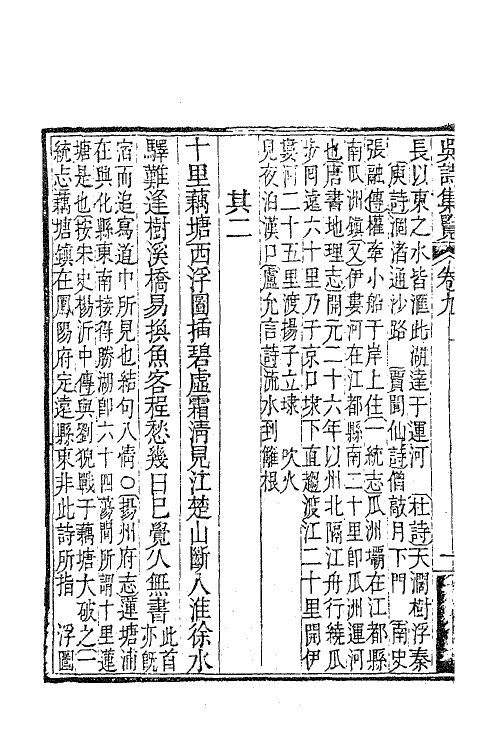 吳詩集覽 卷九
長以東之水皆滙此湖達于運河 杜詩天濶樹浮秦
庾詩洄渚通沙路 賈閬仙詩僧敲月下門 南史
張融傳權牽小船于岸上住 一統志瓜洲壩在江都縣
南瓜洲鎮又伊婁河在江都縣南二十里卽瓜洲運河
也唐書地理志開元二十六年以州北隔江舟行繞瓜
步囘遠六十里乃于京口埭下直趨渡江二十里開伊
婁河二十五里渡揚子立埭 吹火
兒夜泊漢口盧允言詩流水到籬根
其二
十里藕塘西浮圖插碧虛霜清見江楚山斷入淮徐水
驛難逢樹溪橋易換魚客程愁幾日已覺久無書 此首
亦旣
宿而追寫道中所見也結句入情〇揚州府志蓮塘浦
在興化縣東南接得勝湖卽六十四蕩間所謂十里蓮
塘是也 按宋史楊沂中傳與劉猊戰于藕塘大破之一
統志藕塘鎮在鳳陽府定遠縣東非此詩所指 浮圖